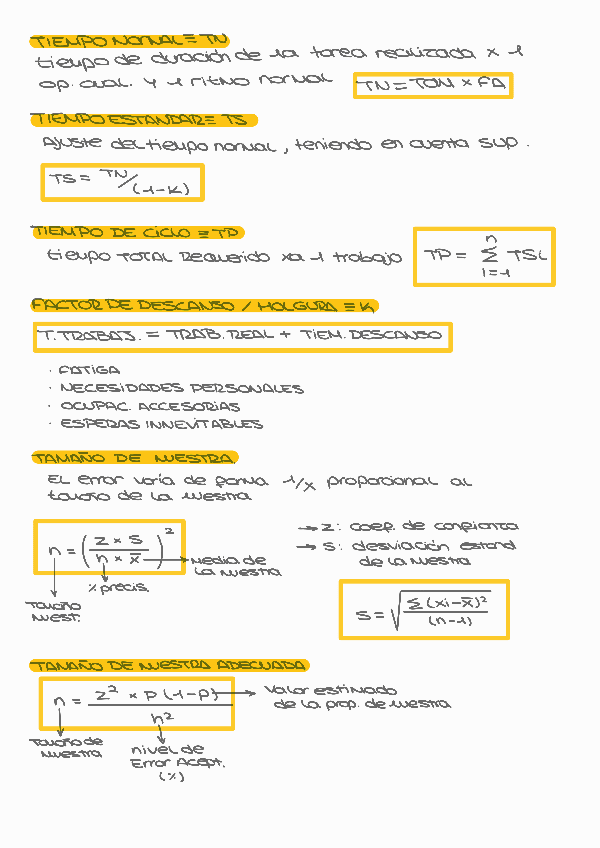 TIEMPO NORMAL ≡ TN
tiempo de duración de la tarea realizada x 1
op. cual. y 1 ritmo normal
TN = TOM × FA
TIEMPO ESTANDAR ≡ TS
Ajuste del tiempo normal, teniendo en cuenta SUP.
TS = TN/(1-K)
TIEMPO DE CICLO ≡ TP
tiempo TOTAL Requerido xa 1 trabajo
TP = n Σ i=1 TSi
FACTOR DE DESCANSO / HOLGURA ≡ K
T. TRABAJ. = TRAB. REAL + TIEM. DESCANSO
· FATIGA
· NECESIDADES PERSONALES
· OCUPAC. ACCESORIAS
· ESPERAS INNEVITABLES
TAMAÑO DE MUESTRA
El error varía de forma 1/x proporcional al
tamaño de la muestra
n = (z × s / h × x̄)²
→ Media de
la muestra
↓ % precis.
↓ Tamaño
Muest.
→ z: coef. de confianza
→ s: desviación estand
de la muestra
s = √(Σ(xi-x̄)² / (n-1))
TAMAÑO DE MUESTRA ADECUADA
n = z² × p(1-p) / h²
→ Valor estimado
de la prop. de muestra
↓ Tamaño de
Muestra
↓ nivel de
Error Acept.
(%)